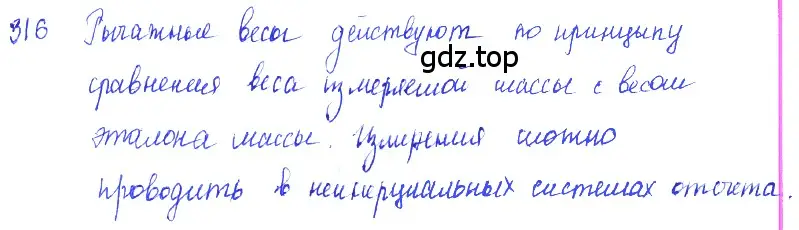 316 Рычажные весы действуют по принципу
gdz.top
сравнения веса измеряемой массы с весом
эталона массы. Измерения можно
проводить в неинерциальных системах отсчета.